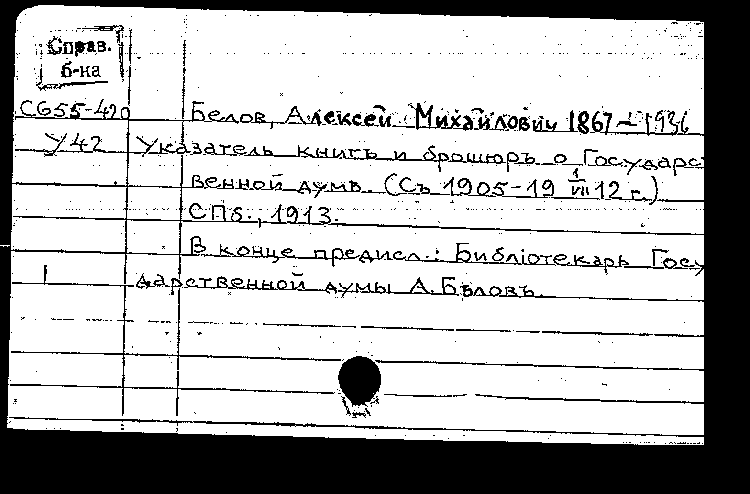 Справ.
б-ка
С655-420
У42
Белов, Алексей Михайлович 1867–1936
Указатель книгъ и брошюръ о Государс
венной думѣ. (Съ 1905-19 1/VII 12 г.)
СПб., 1913.
В конце предисл.: Библіотекарь Госу
дарственной думы А. Бѣловъ.